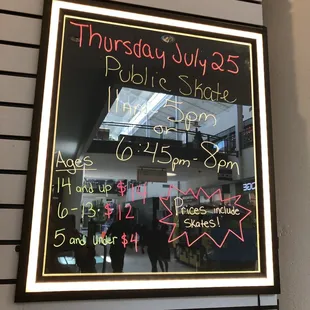 Thursday July 25
Public Skate
11am-5pm
or
6:45pm-8pm
Ages
14 and up
6-13: $12
5 and under $4
Prices include
skates!